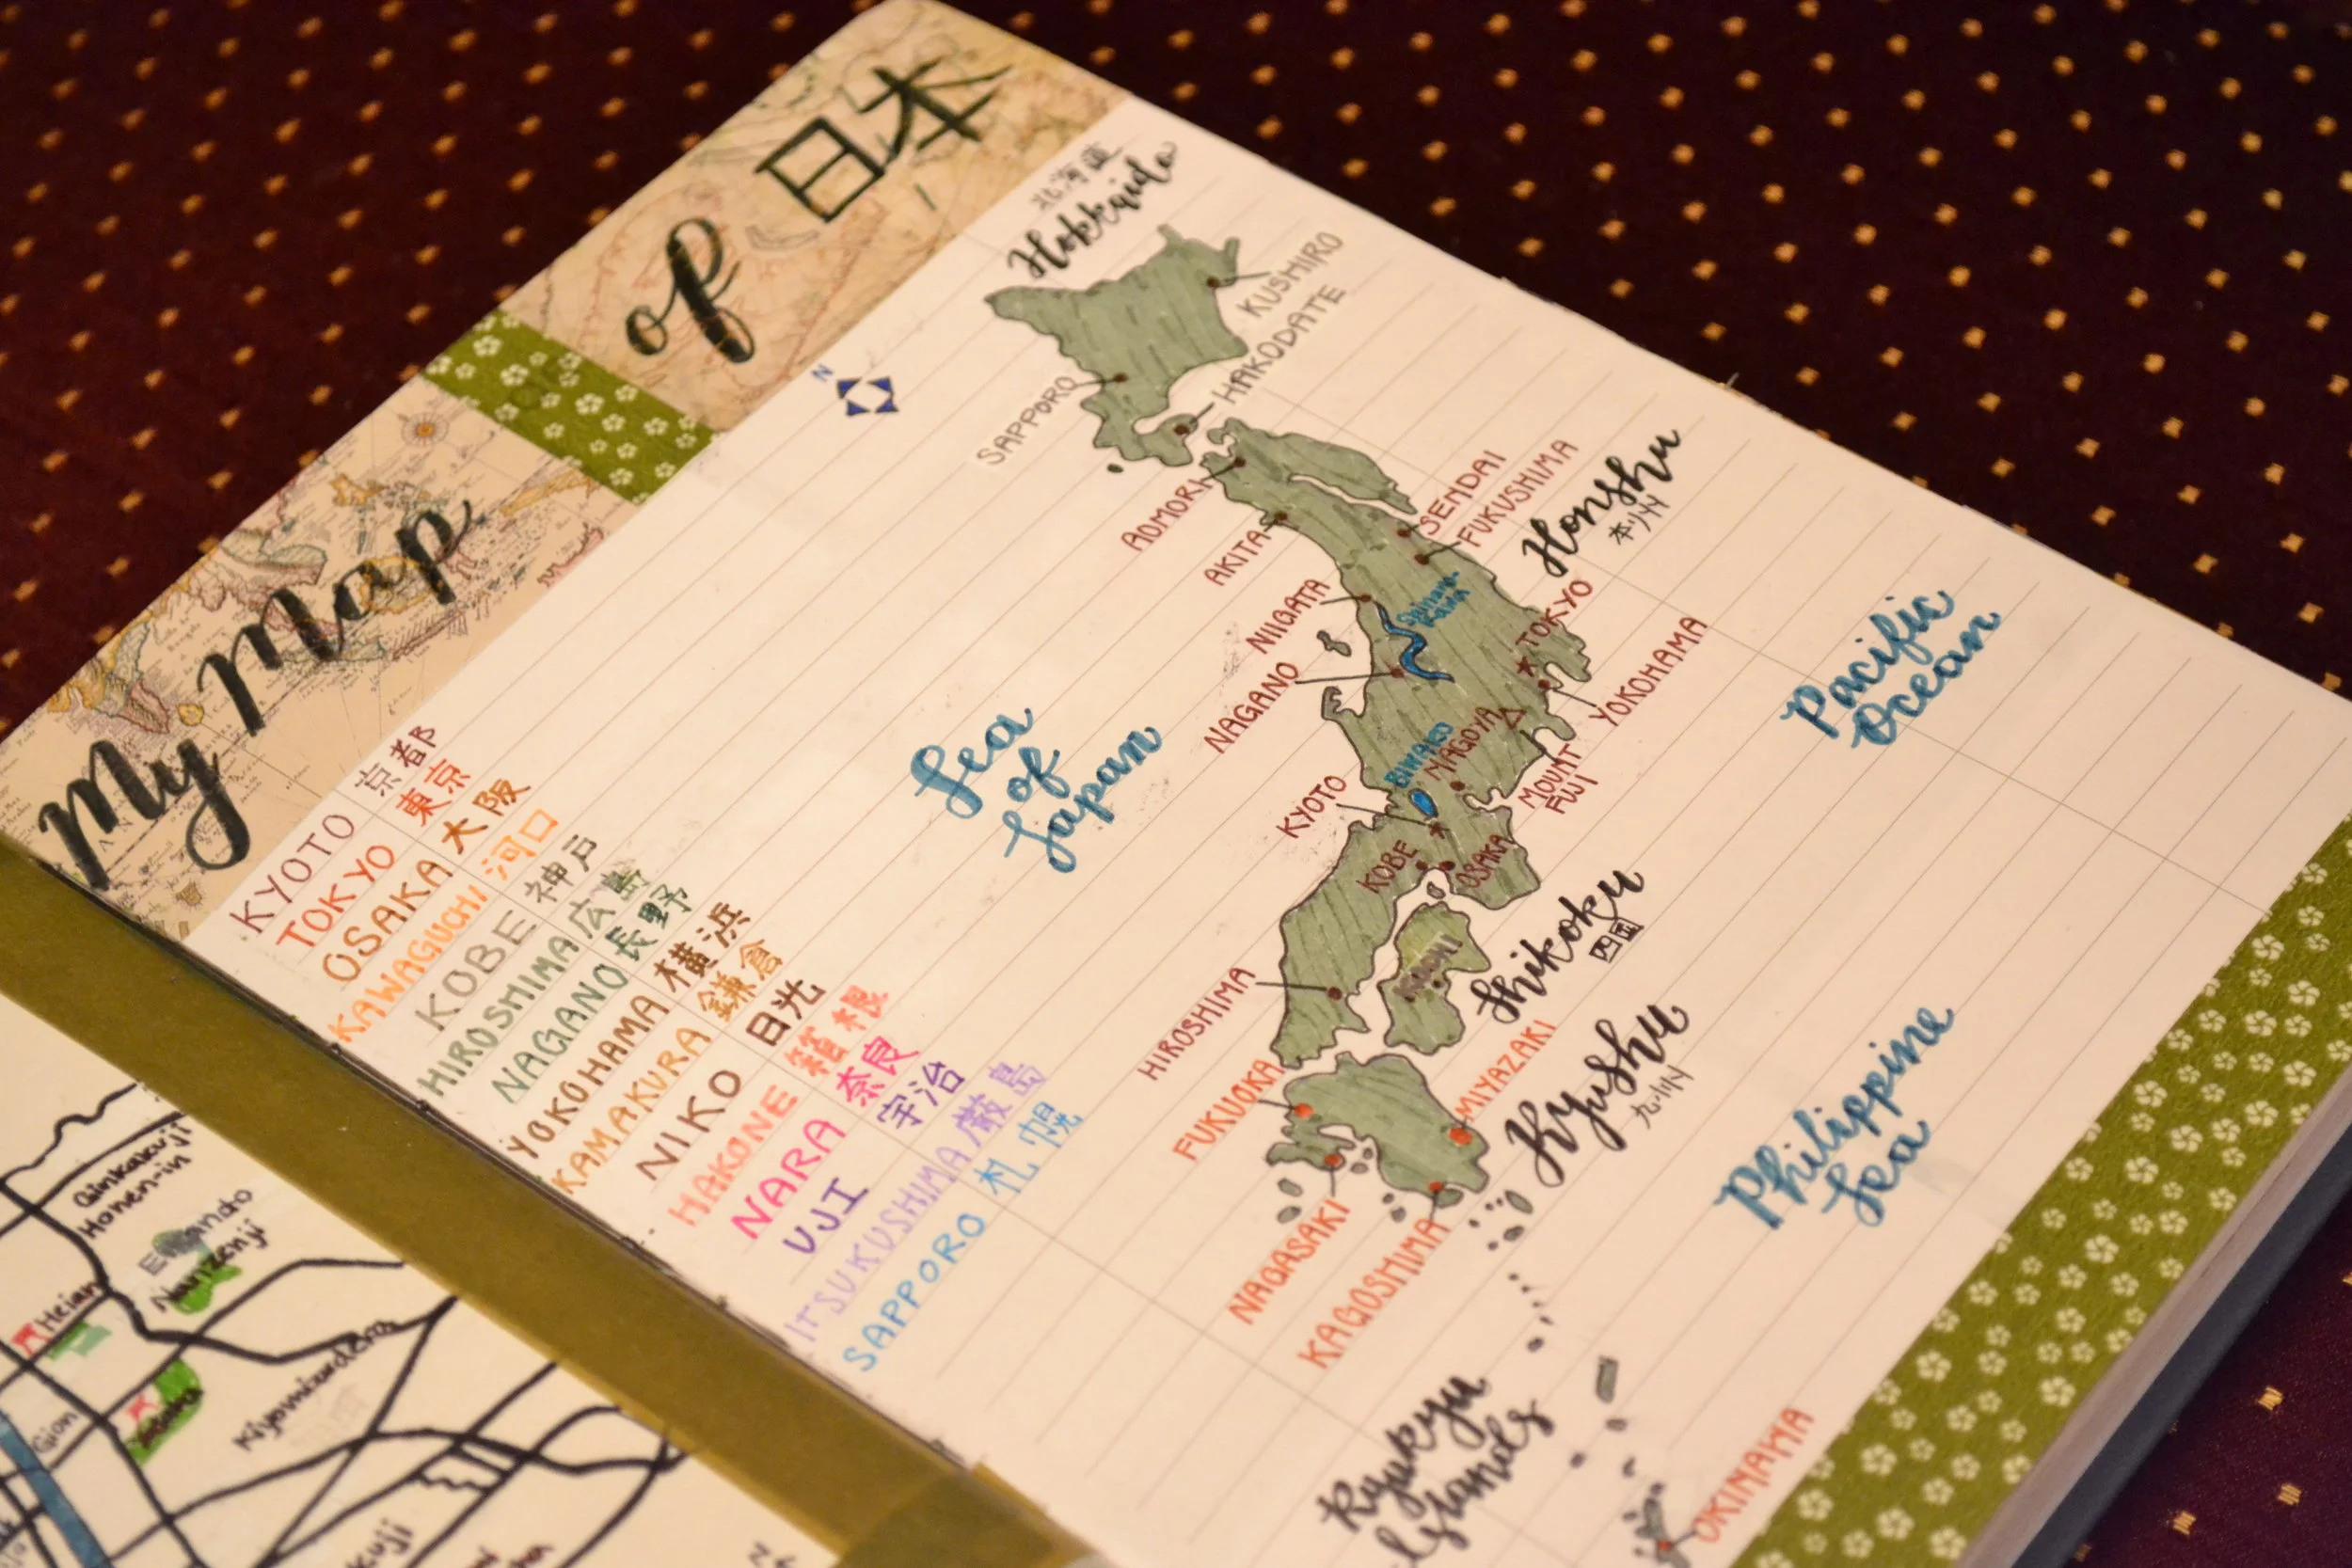 My Map
of 日本
北海道
Hokkaido
KUSHIRO
HAKODATE
SAPPORO
N
AOMORI
AKITA
NIIGATA
NAGANO
SENDAI
FUKUSHIMA
Honshu
本州
TOKYO
YOKOHAMA
MOUNT
FUJI
NAGOYA
BIWAKO
KYOTO
KOBE
OSAKA
HIROSHIMA
Shikoku
四国
Kyushu
九州
FUKUOKA
MIYAZAKI
NAGASAKI
KAGOSHIMA
Ryukyu
Islands
OKINAWA
Sea
of
Japan
Pacific
Ocean
Philippine
Sea
KYOTO 京都
TOKYO 東京
OSAKA 大阪
KAWAGUCHI 河口
KOBE 神戸
HIROSHIMA 広島
NAGANO 長野
YOKOHAMA 横浜
KAMAKURA 鎌倉
NIKO 日光
HAKONE 箱根
NARA 奈良
UJI 宇治
ITSUKUSHIMA 厳島
SAPPORO 札幌
Ginkakuji
Honen-in
Nanzenji
Heian
Gion
Kiyomizudera